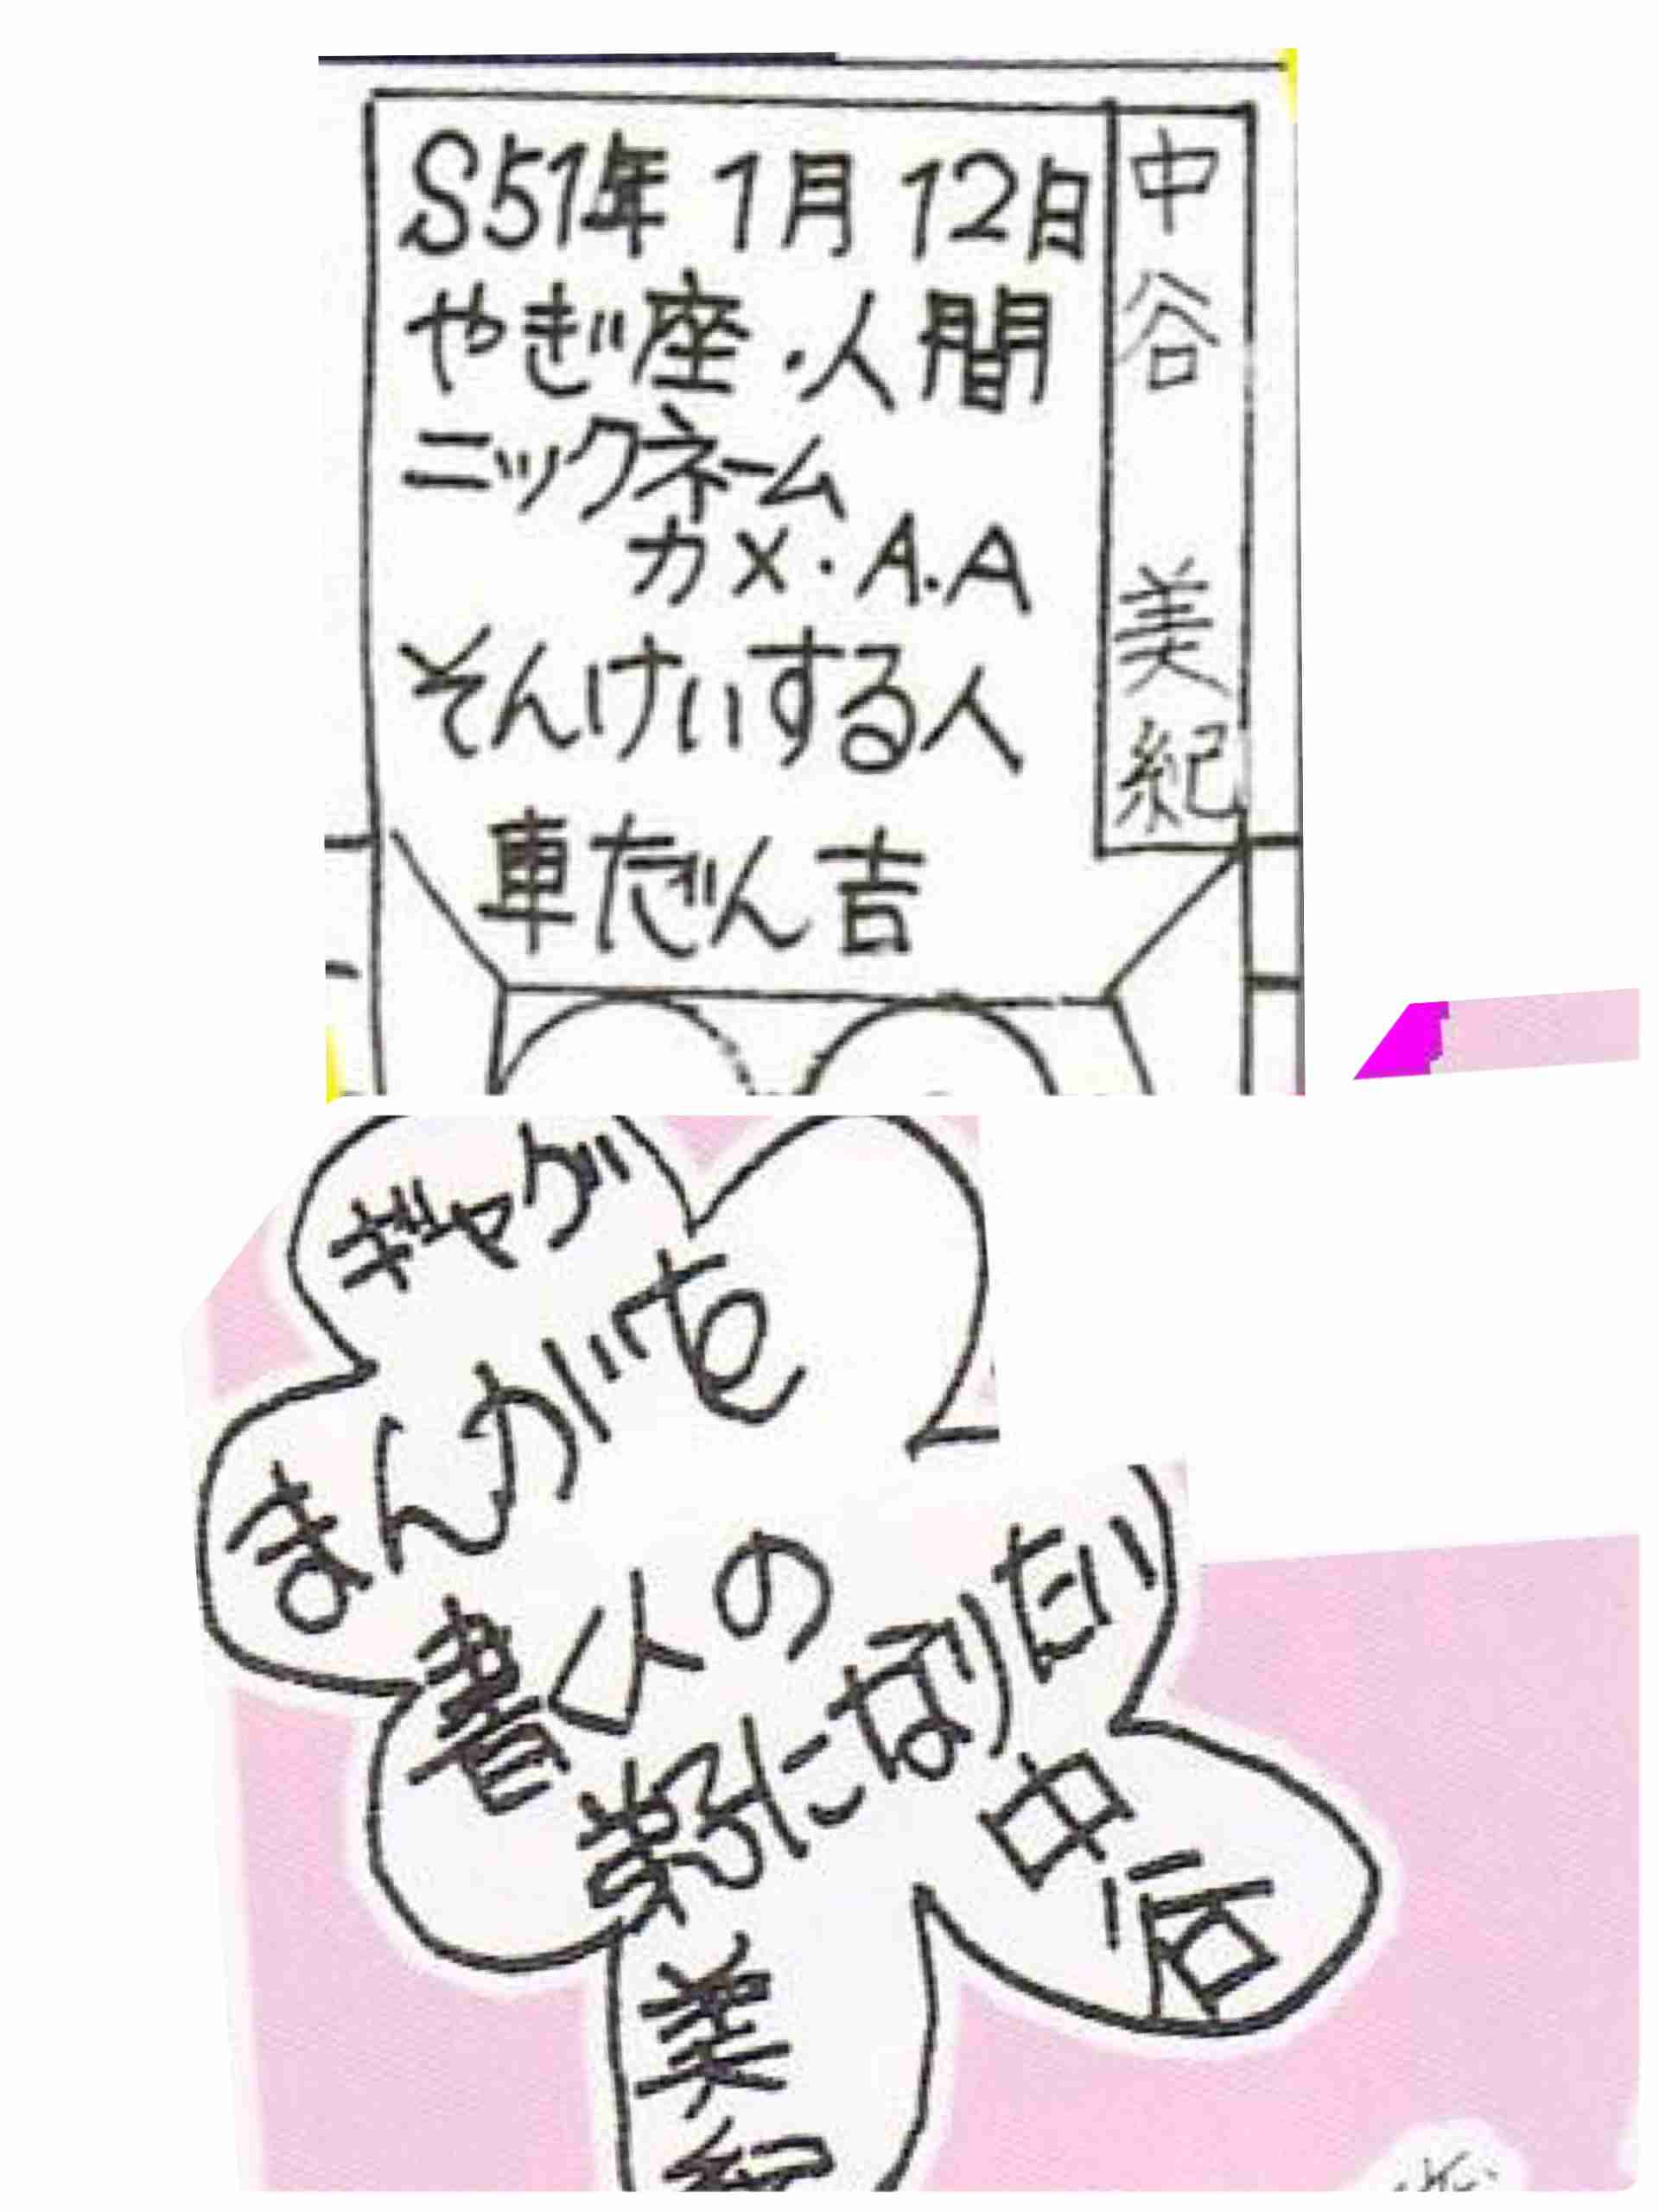 中谷 美紀
S51年 1月 12日
やぎ座・人間
ニックネーム
カメ・A.A
そんけいする人
車だん吉
ギャグ
まんがを
書く人の
弟子になりたい
中谷
美紀